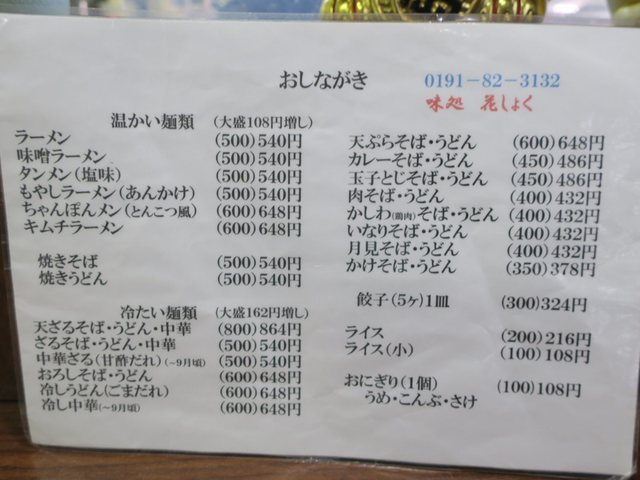 おしながき
0191-82-3132
味処 花しょく
温かい麺類 (大盛108円増し)
ラーメン (500)540円
味噌ラーメン (500)540円
タンメン(塩味) (500)540円
もやしラーメン(あんかけ) (500)540円
ちゃんぽんメン(とんこつ風) (600)648円
キムチラーメン (600)648円
焼きそば (500)540円
焼きうどん (500)540円
冷たい麺類 (大盛162円増し)
天ざるそば・うどん・中華 (800)864円
ざるそば・うどん・中華 (500)540円
中華ざる(甘酢だれ)(~9月頃) (500)540円
おろしそば・うどん (600)648円
冷しうどん(ごまだれ) (600)648円
冷し中華(~9月頃) (600)648円
天ぷらそば・うどん (600)648円
カレーそば・うどん (450)486円
玉子とじそば・うどん (450)486円
肉そば・うどん (400)432円
かしわ(鶏肉)そば・うどん (400)432円
いなりそば・うどん (400)432円
月見そば・うどん (400)432円
かけそば・うどん (350)378円
餃子(5ヶ)1皿 (300)324円
ライス (200)216円
ライス(小) (100)108円
おにぎり(1個) (100)108円
うめ・こんぶ・さけ